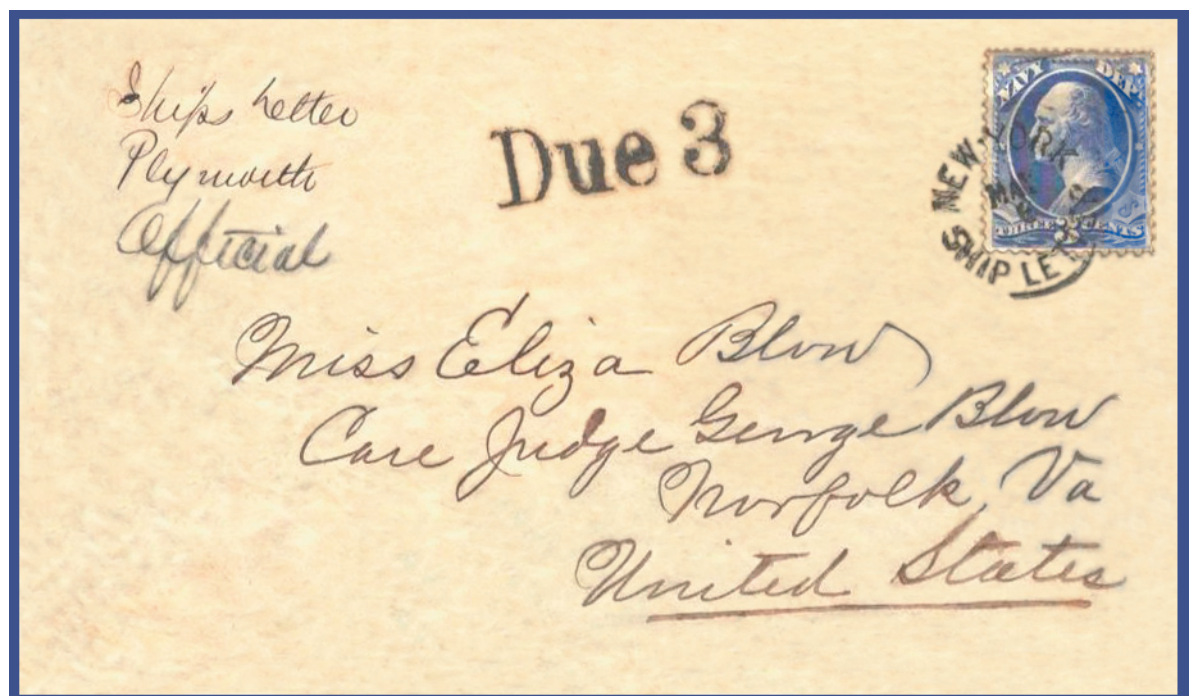 Ships Letter
Plymouth
Official
Due 3
NAVY DEP
NEW-YORK
MAY
SHIP LET
Miss Eliza Blow
Care Judge George Blow
Norfolk, Va
United States